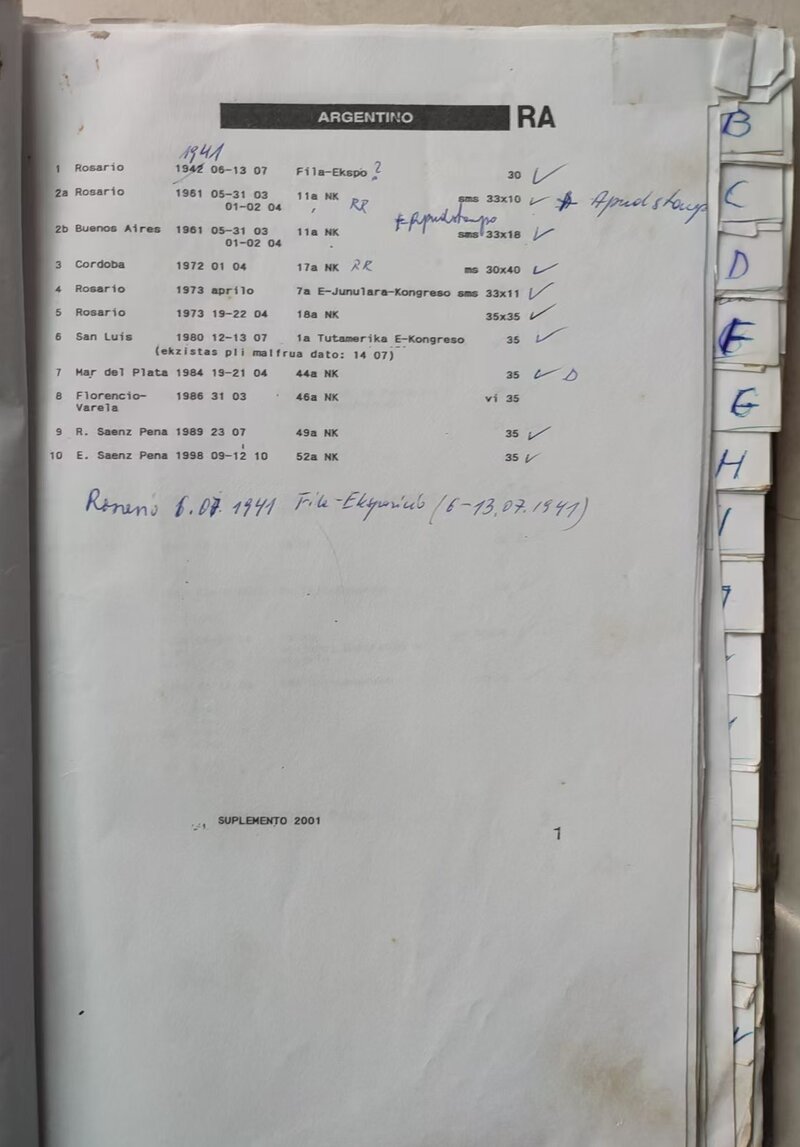 ARGENTINO RA
1941
1 Rosario 1942 06-13 07 Fila-Ekspo ? 30
2a Rosario 1961 05-31 03 11a NK RR sms 33x10 Apudstamp
01-02 04
Apudstampo
2b Buenos Aires 1961 05-31 03 11a NK sms 33x18
01-02 04
3 Cordoba 1972 01 04 17a NK RR ms 30x40
4 Rosario 1973 aprilo 7a E-Junulara-Kongreso sms 33x11
5 Rosario 1973 19-22 04 18a NK 35x35
6 San Luis 1980 12-13 07 1a Tutamerika E-Kongreso 35
(ekzistas pli malfrua dato: 14 07)
7 Mar del Plata 1984 19-21 04 44a NK 35 D
8 Florencio- 1986 31 03 46a NK vi 35
Varela
9 R. Saenz Pena 1989 23 07 49a NK 35
10 E. Saenz Pena 1998 09-12 10 52a NK 35
6.07.1941 (6-13.07.1941)
SUPLEMENTO 2001
1
B
C
D
F
G
H
I
J